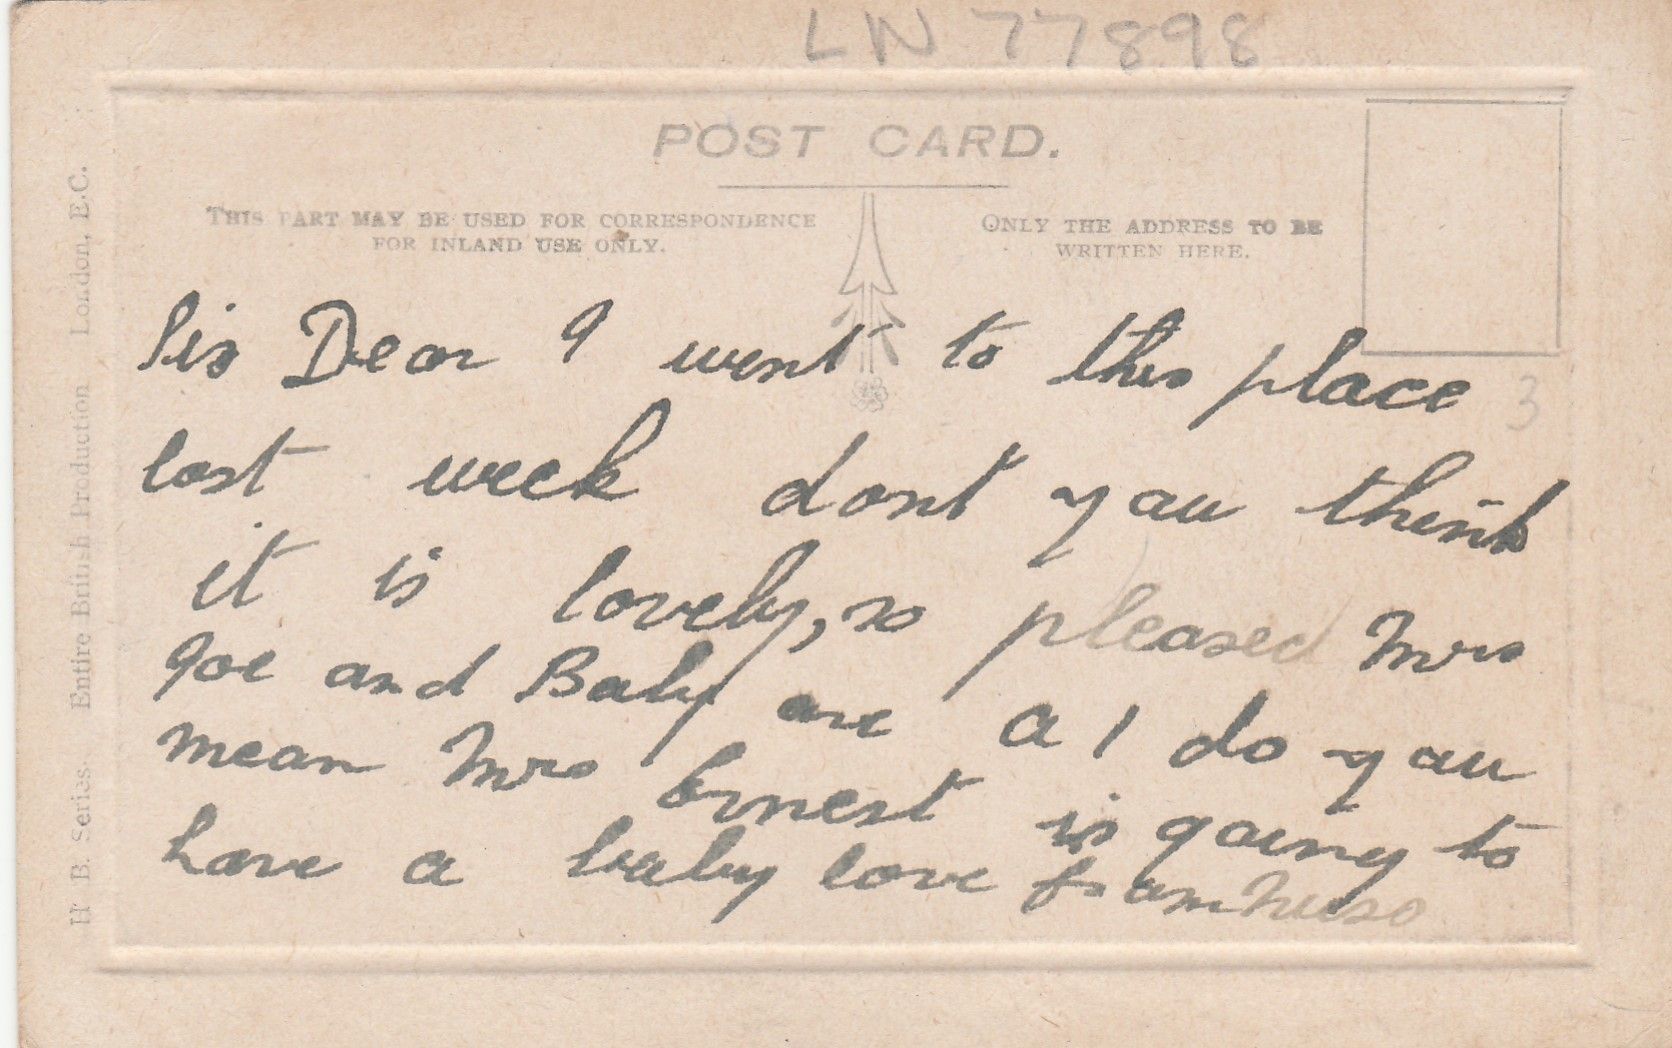 LN 77898
POST CARD.
THIS PART MAY BE USED FOR CORRESPONDENCE
FOR INLAND USE ONLY.
ONLY THE ADDRESS TO BE
WRITTEN HERE.
H. B. Series. Entire British Production London, E.C.
Sis Dear I went to this place
3
last week dont you think
it is lovely, so pleased Mrs
Joe and Baby are A 1 do you
mean Mrs Ernest is going to
have a baby love from